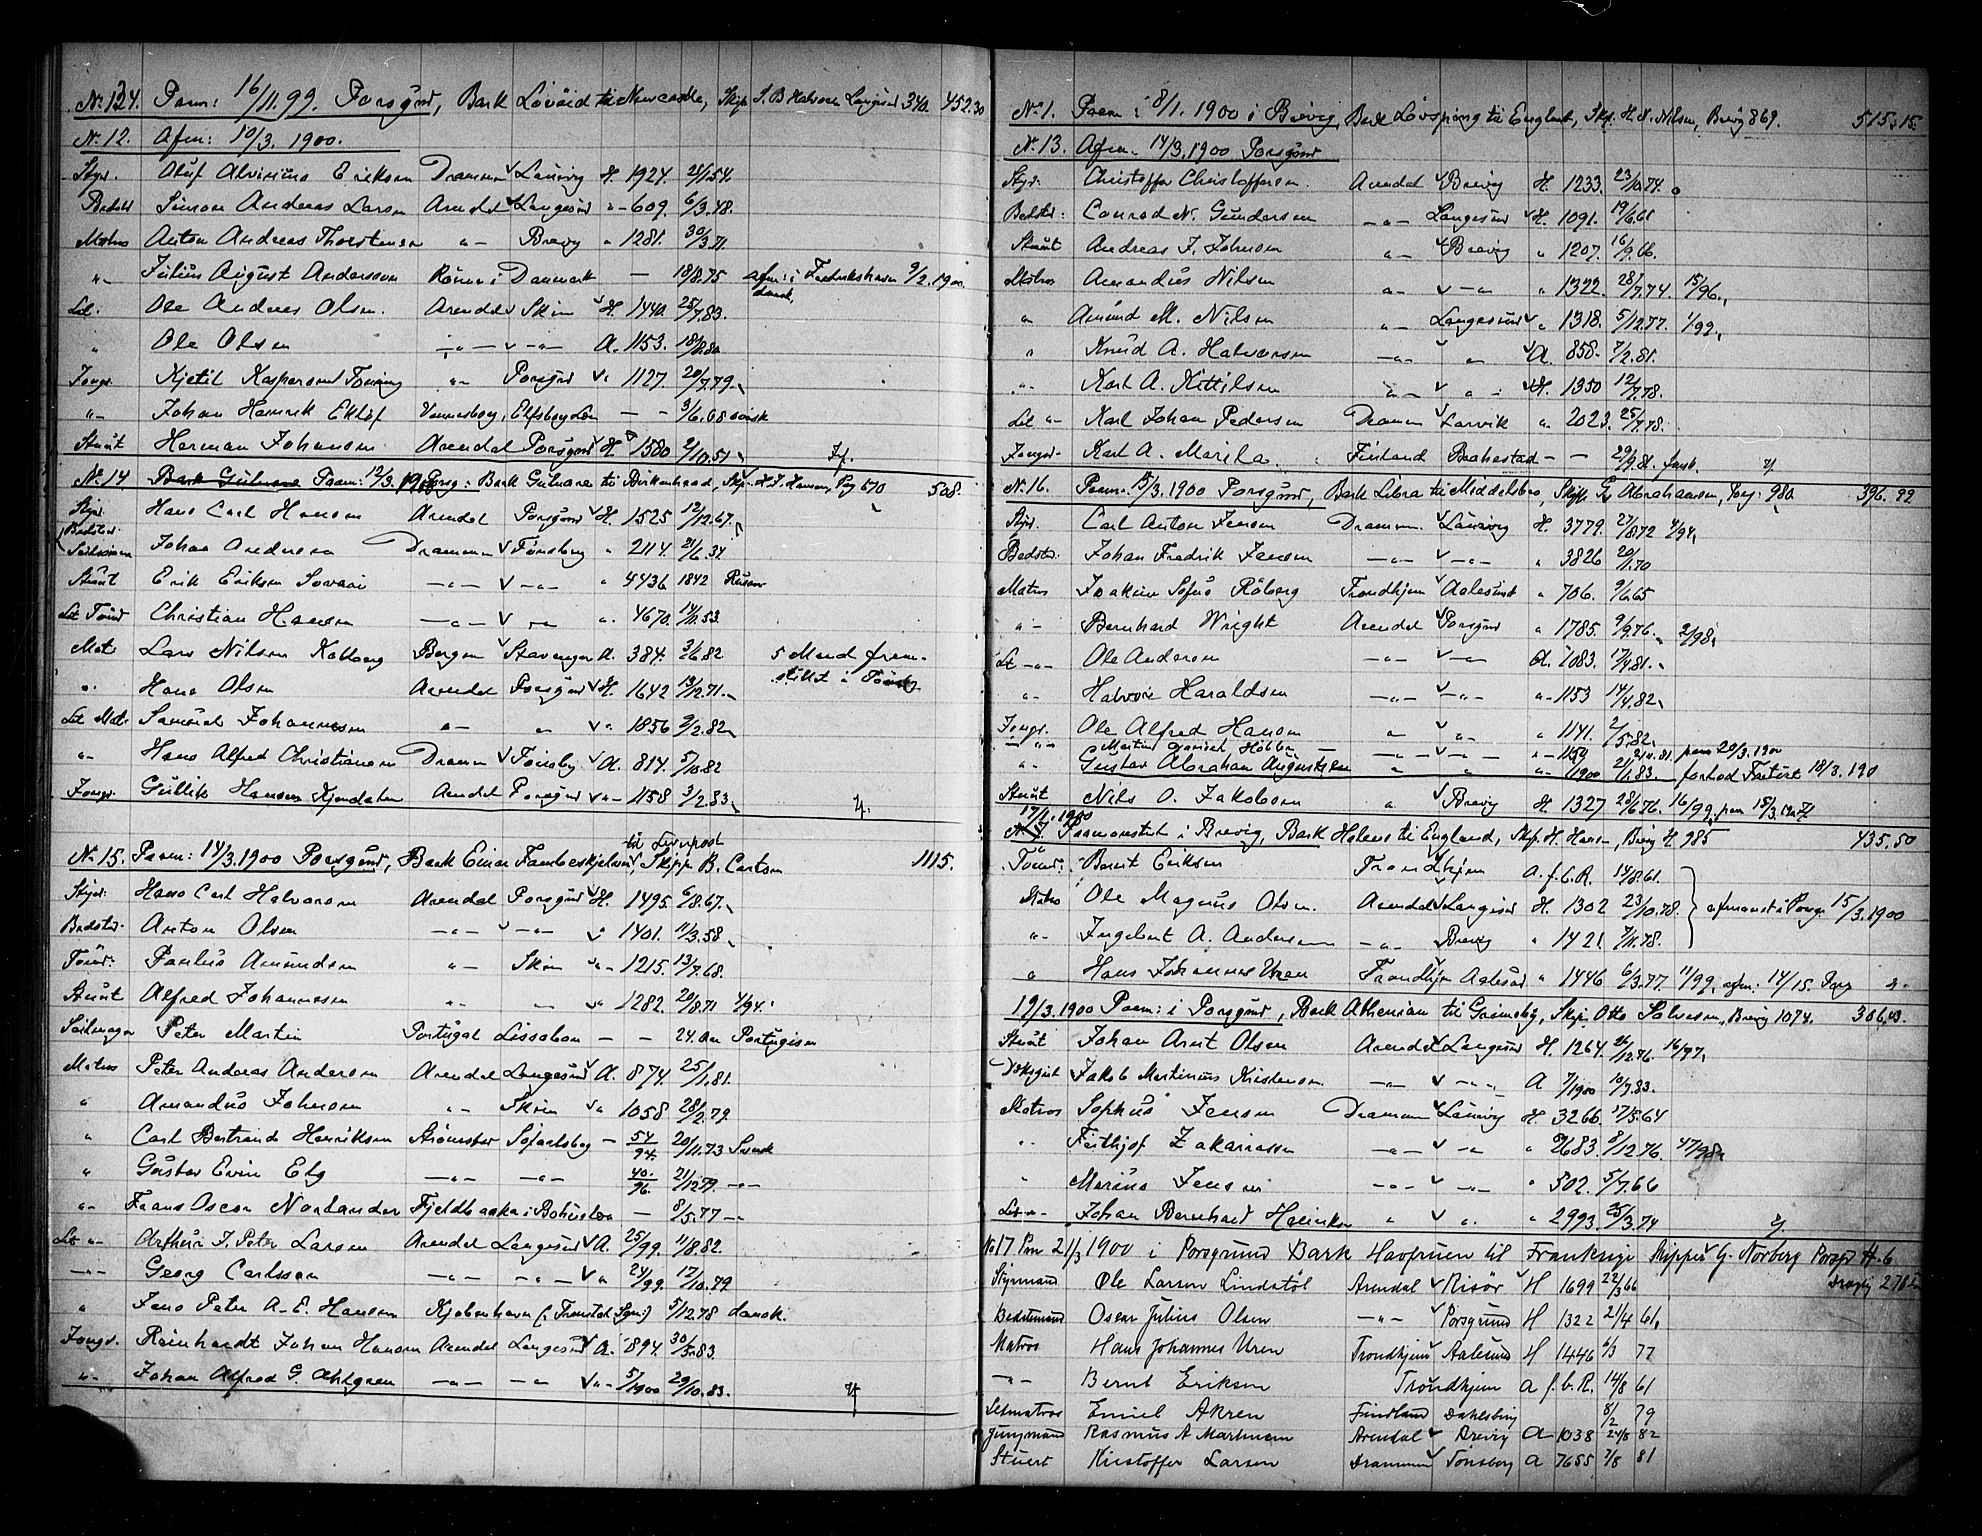 No 124. Paam: 16/11.99. Porsgund, Bark Lövöid til Newcastle, Skip. S. B. Halvorsen Langesund 340. 452.30
No. 12. Afm: 10/3. 1900.
Styr. Oluf Alvinius Eriksen Drammen Laurvig H. 1924. 21/1.54.
Bedstd Simon Andreas Larsen Arendal Langesund " 609. 6/3.48.
Matros Anton Andreas Thorstensen " Brevig " 1281. 30/3.71.
" Julius August Andersson i Danmark — 18/8.75 afm: i Fredrikshavn 9/2.1900. dansk.
Let. Ole Andreas Olsen. Arendal Skien H. 1440. 25/7.83.
" Ole Olsen " " A. 1153. 18/8.80
Jongr. Kjetil Kaspersen " Porsgrd " 1127. 20/7.79.
" Johan Henrik Eklöf Vennersborg, Elfsborg Län — — 3/6.68 svensk
Stuüt Herman Johansen Arendal Porsgrund H. 1580 2/10.51
No. 14 Bark Gulnare Paam: 12/3. 1900 Porsg: Bark Gulnare til Birkenhead, Skip. H. J. Hansen, Porsg 670 508.
Styr. Hans Carl Hansen Arendal Porsgrund H. 1525 12/12.67.
Bedstd. Seilsömmer Johan Andersen Drammen Tönsberg " 2114. 21/6.34
Stuüt Erik Eriksen — " — " 4436 1842 Russer
Let Tömd Christian Hansen — " — " 4670. 14/11.53
Mat. Lars Nilsen Kolberg Bergen Stavanger A. 384. 3/6.82 5 Mand frem-
" Hans Olsen Arendal Porsgrund H. 1642 13/12.71. stillet i Tönsbg
Let Mat. Samuel Johannesen " " " 1856 2/2.82
" Hans Alfred Christiansen Drammen Tönsbg A. 814. 5/10.82
Jongr. Gullik Hansen Kjendalen Arendal Porsgrund " 1158 3/2.83.
No. 15. Paam: 14/3.1900 Porsgund, Bark Einar Tambeskjelver, til Liverpool Skipp. B. Carlsen 1115.
Styr. Hans Carl Halvorsen Arendal Porsgrund H. 1495. 6/8.67.
Bedstd. Anton Olsen — " — " 1401. 11/3.58
Tömr. Paulus Amundsen " Skien " 1215. 13/7.68.
Stuüt Alfred Johannesen " " " 1282. 20/8.71 4/94.
Seilmager Peter Martin Portugal Lissabon — — 24. Aar Portugiser
Matros Peter Andreas Andersen Arendal Langesund A. 874. 25/1.81.
" Amandus Johnsen " Skien " 1058 28/2.79
" Carl Bertrand Henriksen Strömstad — 54/94. 20/11.73 Svensk
" Gustav Evin Elg — " — 40./96. 21/12 79. — " —
" Frans Oscar Norlander Fjeldbacka i Bohuslen — 8/5.77 — " —
Let " Arthur J. Peter Larsen Arendal Langesund A. 25/99. 11/8.82.
" Georg Carlsson — " — " 24/99. 17/10.79
" Jens Peter A. E. Hansen Kjöbenhavn 5/12.78 dansk.
Jongr. Reinhardt Johan Hansen Arendal Langesund A. 894. 30/5.83.
" Johan Alfred G. Ahlgren — " — — " — " 5/1900 29/10.83.
No. 1. Paam: 8/1. 1900 i Brevig, Bark Lövspring til England, Skp. H. N. Nilsen, Brevig 869. 515.15.
No. 13. Afm. 14/3.1900 Porsgrund
Styr. Christoffer Christoffersen. Arendal Brevig H. 1233. 23/10.74.
Bedstd: Conrad N. Gundersen — " — Langesund H. 1091. 19/6.61
Stuüt Andreas J. Johnsen " Brevig " 1207. 16/9.66.
Matros Amandus Nilsen " — " — " 1322. 28/7.74. 15/96.
" Amund M. Nilsen " Langesund " 1318. 5/12.77. 1/99.
" Knud A. Halvorsen — " — " A. 858. 7/2.81.
" Karl A. Kittilsen — " — " H. 1350 12/7.78.
Let " Karl Johan Pedersen Drammen Larvik " 2023. 25/7.78.
Jongr. Karl A. Marila Finland Brahestad — — 29/9.81.
No. 16. Paam. 15/3.1900 Porsgrund, Bark Libra til Middelsbro, Skipp. Abrahamsen, Porsg. 980 396.99
Styr. Carl Anton Jensen Drammen Laurvig H. 3779. 27/8.72 4/94.
Bedstd. Johan Fredrik Jensen — " — — " — " 3826 20/1.70
Matros Joakim Sofus Röberg Trondhjem Aalesund " 706. 9/6.65
" Bernhard Wright Arendal Porsgrund " 1785. 9/9.76. 2/98.
Let " Ole Andersen — " — — " — A. 1083. 17/9.81.
" Halvor Haraldsen — " — — " — " 1153 14/4.82
Jongr. Ole Alfred Hansen " " " 1141. 2/5.82.
" Martin — " — — " — " 1159 paam 20/3.1900
" Gustav Abraham Augustsen " " " 1900 21/1.83. forhod Forturt 18/3.190
Stuüt Nils O. Jakobsen " Brevig H. 1327. 28/6.76. 16/99. paam 15/3
17/1.1900
No. 7. Paamönstret i Brevig, Bark Helene til England, Skp. H. Hansen, Brevig H. 985 435.50
Tömr. Bernt Eriksen Trondhjem A. f. b. R. 14/8.61.
Matros Ole Magnus Olsen. Arendal Langesund H. 1302 23/10.78. afmönst i Porsgr 15/3.1900
" Ingebret A. Andersen — " — Brevig " 1421 7/11.78.
" Hans Johannes Uren Trondhjem Aalesund " 1446 6/3.77. 11/99, afm. 14/15. Porsg
19/3.1900 Paam: i Porsgrund, Bark Athenian til Grimsby, Skip. Otto Salvesen, Brevig 1074. 366.43.
Stuüt Johan Arnt Olsen Arendal Langesund H. 1264. 24/12.76. 16/97.
Dæksgut Jakob Martinius Kristensen — " — — " — A 7/1900 10/7.83.
Matros Sophus Jensen Drammen Laurvig H. 3266. 17/5.64
" Fritjof Zakariassen — " — — " — " 2683. 8/12.76. 47/98
" Marius Jensen — " — — " — " 502. 5/7.66
Let " Johan Bernhard Henriksen " " " 2993. 25/3.74
No 17 Paam 21/3 1900 i Porsgrund Bark Havfruen til Frankrige Skipper G. Norberg Porsgd H. 6
Styrmand Ole Larsen Lindstöl Arendal Risör H 1699 22/3 66 Drægtig 278
Bedstemand Oscar Julius Olsen — " — Porsgrund H 1322 21/4 61,
Matros Hans Johannes Uren Trondhjem Aalesund H 1446 6/3 77
— " — Bernt Eriksen Trondhjem A f. b. R. 14/8 61
Letmatros Emiel Akren Findland Dahlsbruy 8/2 79
Jungmand Rasmus A Martinsen Arendal Brevig A 1038 24/8 82
Stuert Kristoffer Larsen Drammen Tönsberg A 7655 7/8 81